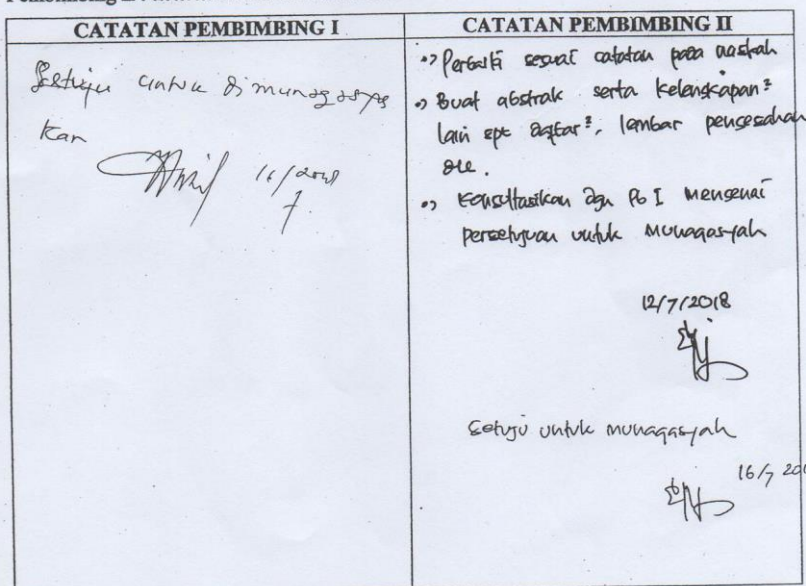 CATATAN PEMBIMBING I
Setuju untuk dimunaqasya
kan
16/2018
7
CATATAN PEMBIMBING II
•) Perbaiki sesuai catatan pada naskah
•) Buat abstrak serta kelengkapan²
lain spt daftar², lembar pengesahan
dll.
•) Konsultasikan dgn Pb I mengenai
persetujuan untuk munaqasyah
12/7/2018
Setuju untuk munaqasyah
16/7 201